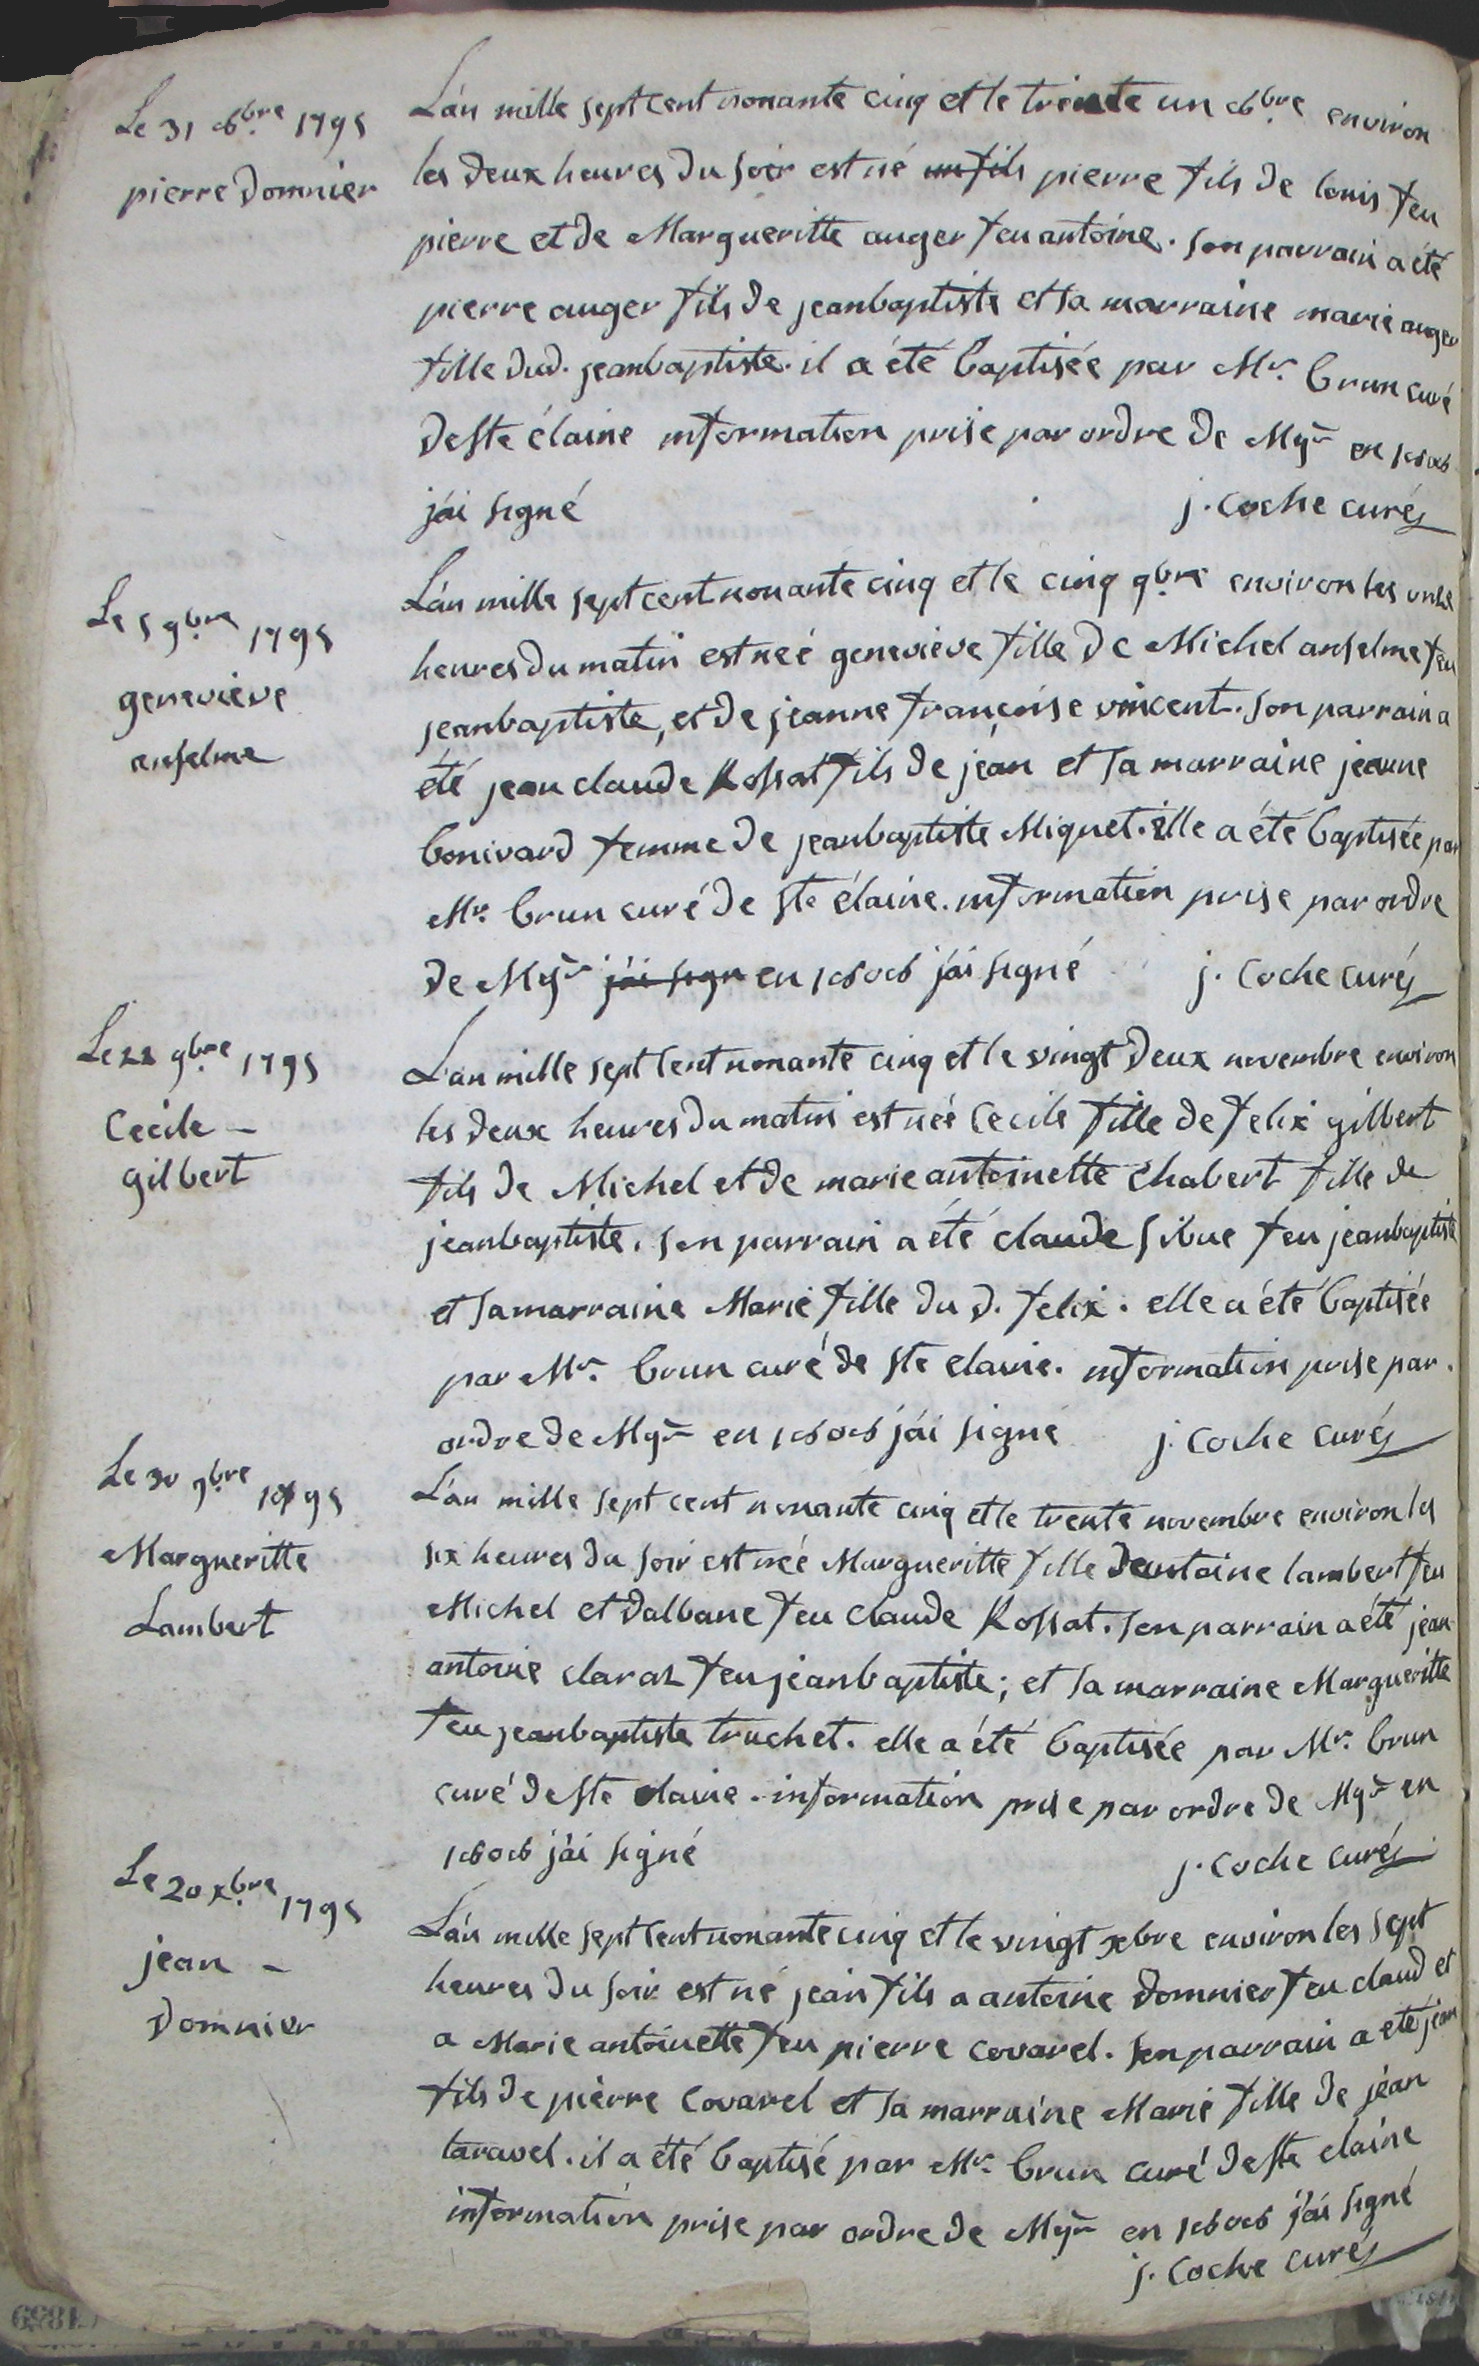 Le 31 8bre 1795
pierre Domnier
L'an mille sept cent nonante cinq et le trente un 8bre environ
les deux heures du soir est né un fils pierre fils de louis feu
pierre et de Margueritte auger feu antoine. son parrain a été
pierre auger fils de jeanbaptiste et sa marraine marie auger
fille dud. jeanbaptiste. il a été baptisée par Mr. brun curé
de ste élaine information prise par ordre de Mgr en 1806
j'ai signé j. Coche curé
Le 5 9bre 1795
geneviève
anselme
L'an mille sept cent nonante cinq et le cinq 9bre environ les onze
heures du matin est neé geneviève fille de Michel anselme feu
jeanbaptiste, et de jeanne françoise vincent. son parrain a
été jean claude Rossat fils de jean et sa marraine jeanne
bonivard femme de jeanbaptiste Miquet. elle a été baptisée par
Mr. brun curé de ste élaine. information prise par ordre
de Mgr j'ai sign en 1806 j'ai signé j. Coche curé
Le 22 9bre 1795
Cecile -
gilbert
L'an mille sept cent nonante cinq et le vingt deux novembre environ
les deux heures du matin est née Cecile fille de felix gilbert
fils de Michel et de marie antoinette Chabert fille de
jeanbaptiste. son parrain a été claude sibue feu jeanbaptiste
et sa marraine Marie fille du d. felix. elle a été baptisée
par Mr. brun curé de ste elaine. information prise par
ordre de Mgr en 1806 j'ai signé j. Coche curé
Le 30 9bre 1795
Margueritte
Lambert
L'an mille sept cent nonante cinq et le trente novembre environ les
six heures du soir est neé Margueritte fille d'antoine lambert feu
Michel et d'albane feu claude Rossat. son parrain a été jean
antoine claraz feu jeanbaptiste; et sa marraine Margueritte
feu jeanbaptiste truchet. elle a été baptisée par Mr. brun
curé de ste elaine. information prise par ordre de Mgr en
1806 j'ai signé j. Coche curé
Le 20 xbre 1795
jean -
Domnier
L'an mille sept cent nonante cinq et le vingt xbre environ les sept
heures du soir est né jean fils a antoine Domnier feu claud et
a Marie antoinette feu pierre covarel. son parrain a eté jean
fils de pierre Covarel et sa marraine Marie fille de jean
taravel. il a été baptisé par Mr. brun curé de ste elaine
information prise par ordre de Mgr en 1806 j'ai signé
j. Coche curé